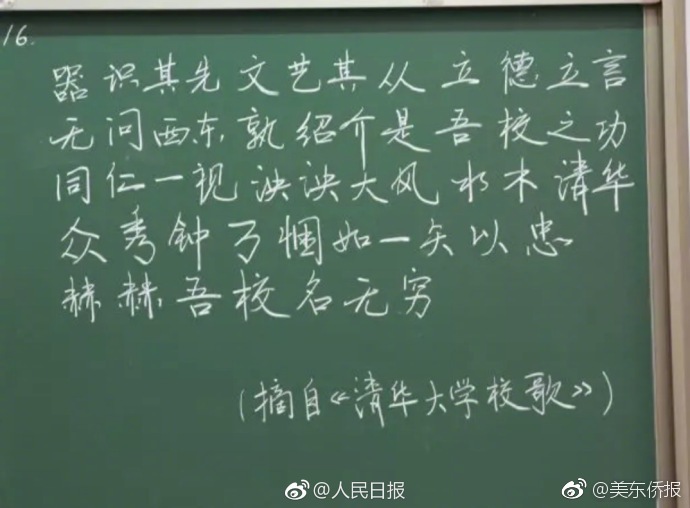 16.
器识其先 文艺其从 立德立言
无问西东 孰绍介是 吾校之功
同仁一视 泱泱大风 水木清华
众秀钟 万悃如一矢以忠
赫赫吾校名无穷
(摘自《清华大学校歌》)
@人民日报
@美东侨报